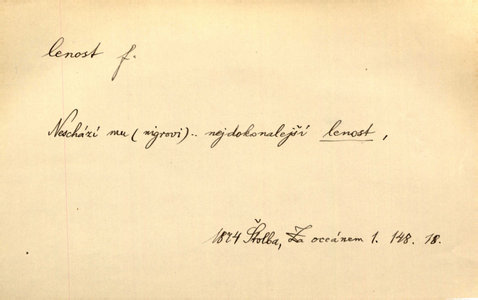 lenost f.
Neschází mu (nigrovi).. nejdokonalejší lenost,
1874 Štolba, Za oceánem 1. 148. 18.